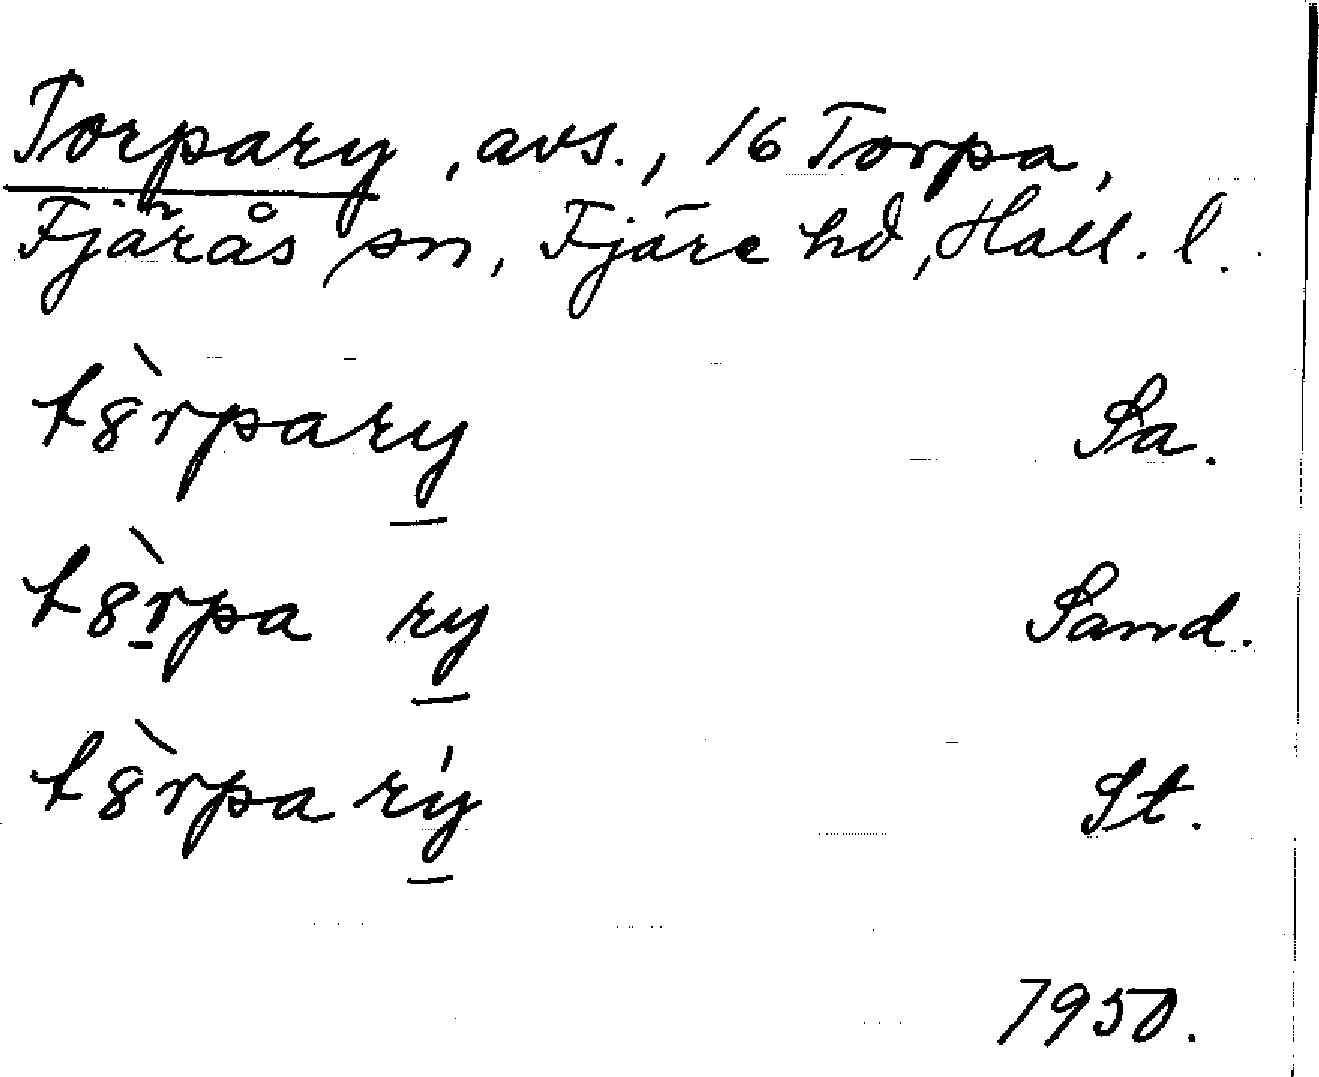 Torpary, avs., 16 Torpa,
Fjärås sn, Fjäre hd, Hall. l.
t8̀rpary Sa.
t8̀rpa ry Sand.
t8̀rpa rý St.
1950.